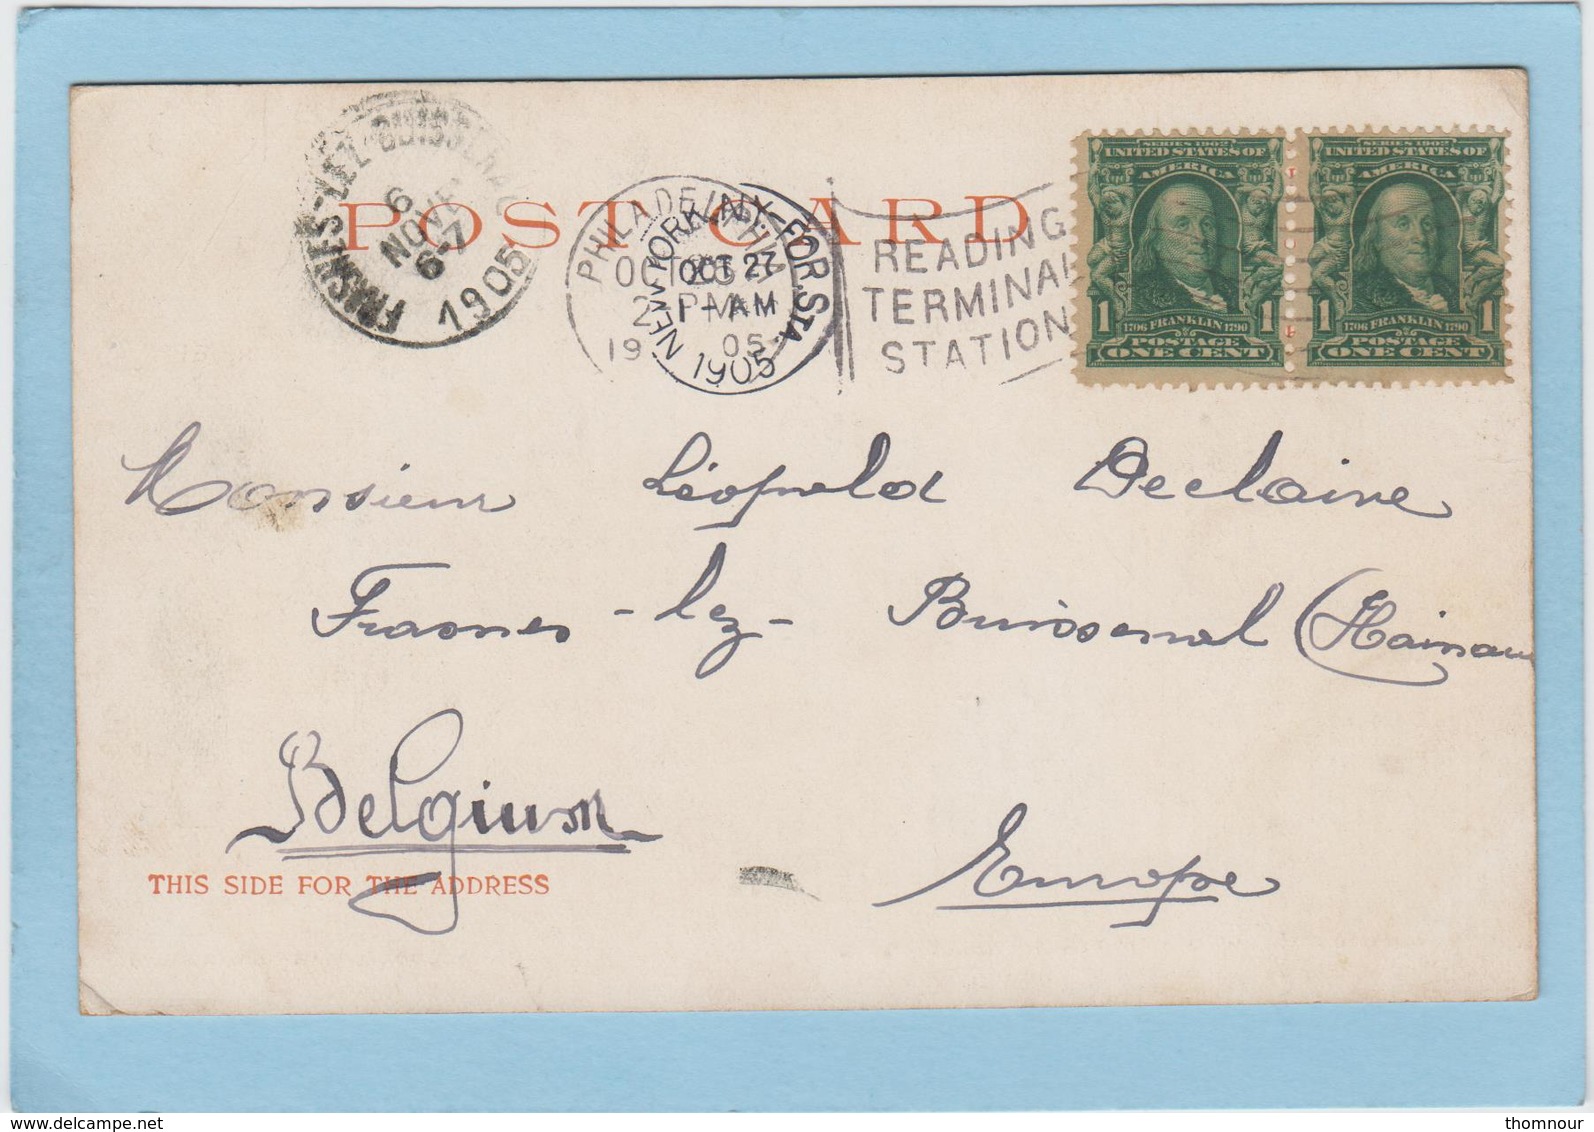 POST CARD
FRASNES-LEZ-BUISSENAL
6
NOVE
6-7
1905
PHILADELPHIA
OCT 26
2 PM
1905
NEW YORK, N.Y.-FOR. STA.
OCT 27
1-AM
1905
READING
TERMINAL
STATION
SERIES 1902
UNITED STATES OF
AMERICA
1 1
1706 FRANKLIN 1790
POSTAGE
ONE CENT
SERIES 1902
UNITED STATES OF
AMERICA
1 1
1706 FRANKLIN 1790
POSTAGE
ONE CENT
Monsieur Léopold Declaire
Frasnes-lez-Buissenal (Hainau
Belgium
THIS SIDE FOR THE ADDRESS
Europe
www.delcampe.net
thomnour